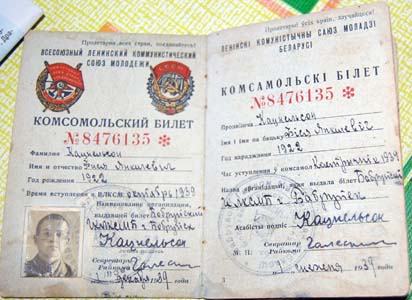 Пролетарии всех стран, соединяйтесь!
ВСЕСОЮЗНЫЙ ЛЕНИНСКИЙ КОММУНИСТИЧЕСКИЙ
СОЮЗ МОЛОДЕЖИ
КОМСОМОЛЬСКИЙ БИЛЕТ
№ 8476135 *
Фамилия Кацнельсон
Имя и отчество Янкелевич
Год рождения 1922
Время вступления в ВЛКСМ октябрь 1939
Наименование организации,
выдавшей билет Бобруйский
Кацнельсон
Секретарь
Райкома
1939 г.
Пролетарыі ўсіх краін, злучайцеся!
ЛЕНІНСКІ КОМУНІСТЫЧНЫ САЮЗ МОЛАДЗІ
БЕЛАРУСІ
КАМСАМОЛЬСКІ БІЛЕТ
№ 8476135 *
Прозвішча Кацнельсон
Імя і імя па бацьку Янкелевіч
Год нараджэння 1922
Час уступлення ў камсамол Кастрычнік 1939
Назва арганізацыі, якая выдала білет Бабруйскі
г. Бабруйск
Асабісты подпіс Кацнельсон
М. П. Сакратар
Райкома
1939 г.